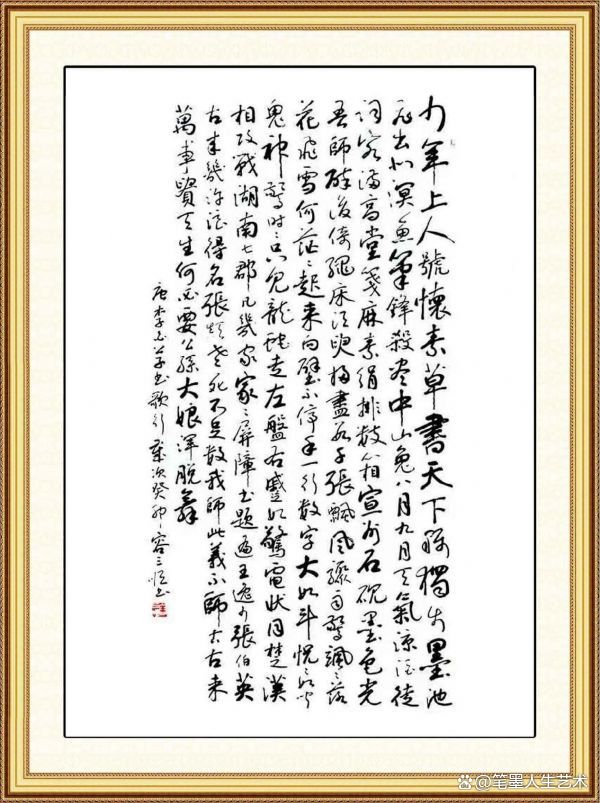 少年上人號懷素草書天下稱獨步墨池
飛出北溟魚筆鋒殺盡中山兔八月九月天氣涼酒徒
詞客滿高堂箋麻素絹排數箱宣州石硯墨色光
吾師醉後倚繩床須臾掃盡數千張飄風驟雨驚颯〻落
花飛雪何茫〻起來向壁不停手一行數字大如斗怳〻如聞
鬼神驚時〻只見龍蛇走左盤右蹙如驚電狀同楚漢
相攻戰湖南七郡凡幾家家〻屏障書題遍王逸少張伯英
古來幾許浪得名張顛老死不足數我師此義不師古古來
萬事貴天生何必要公孫大娘渾脫舞
唐李白草書歌行 歲次癸卯 容三書
@笔墨人生艺术